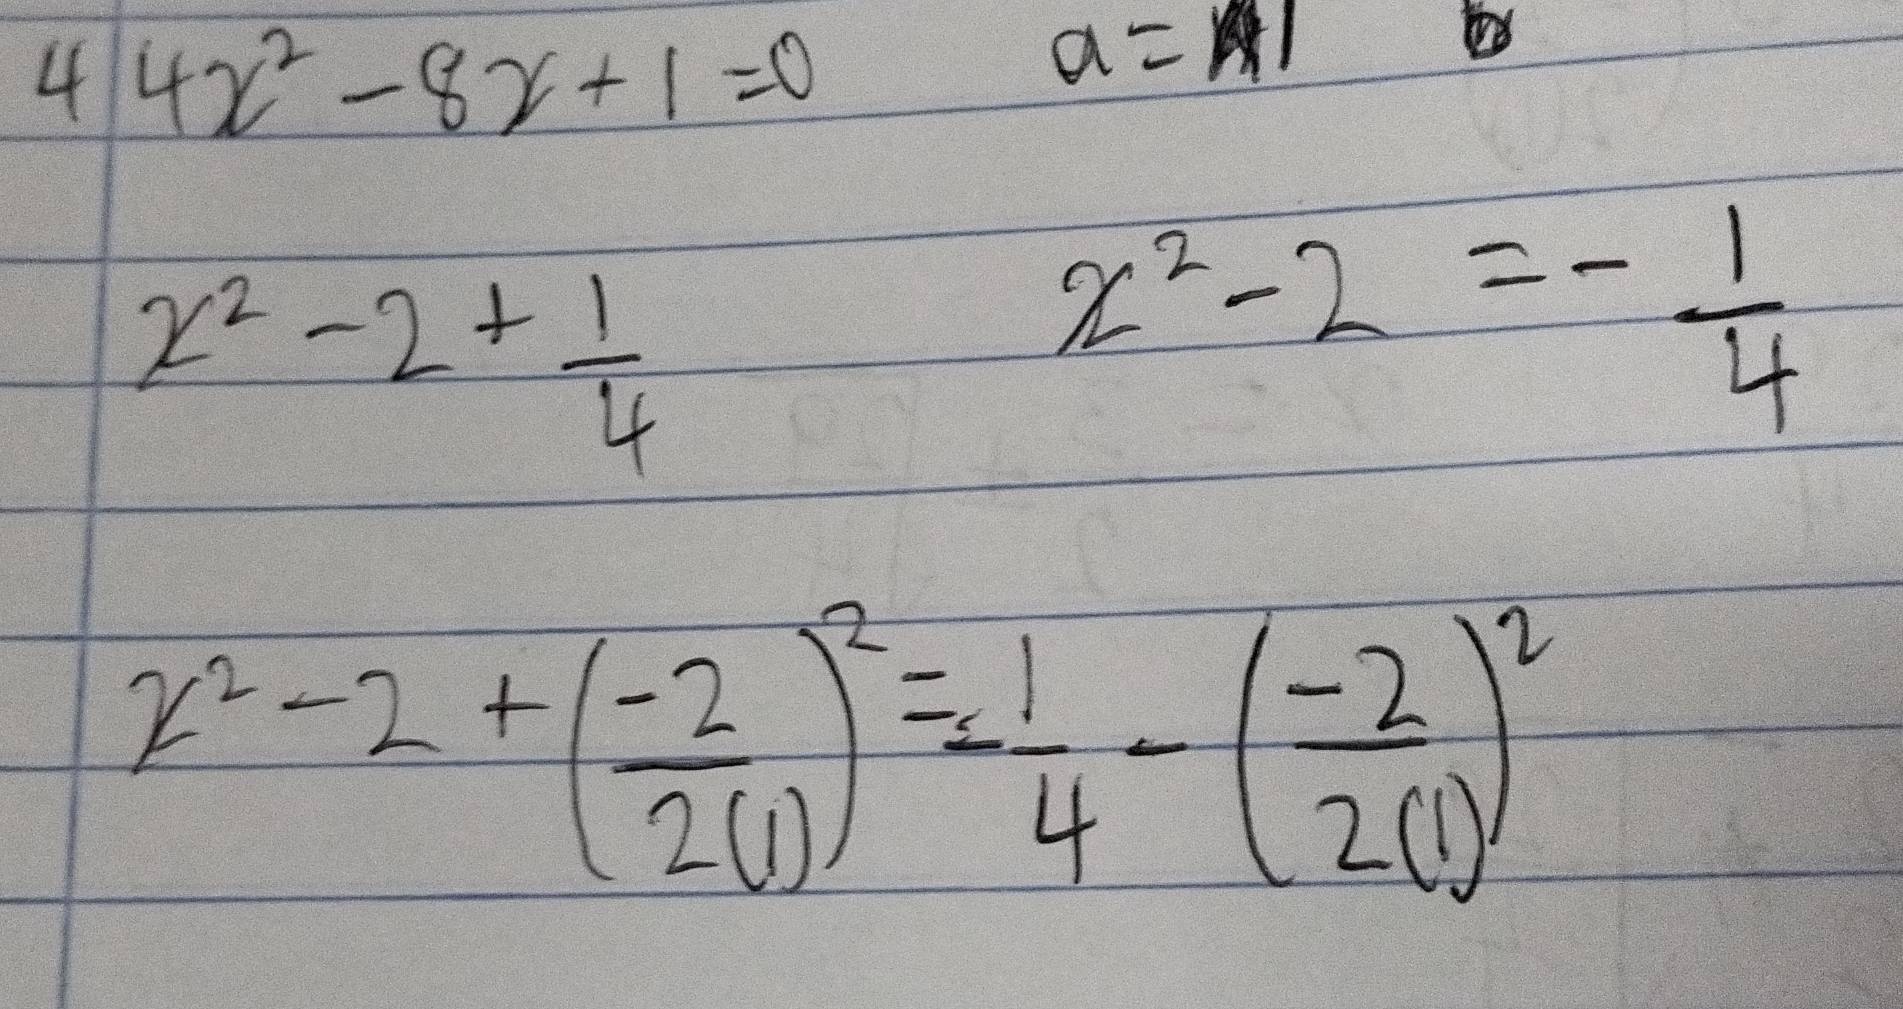 4 4x² - 8x + 1 = 0 a = 1
x² - 2 + 1/4 x² - 2 = - 1/4
x² - 2 + (-2/2(1))² = - 1/4 - (-2/2(1))²